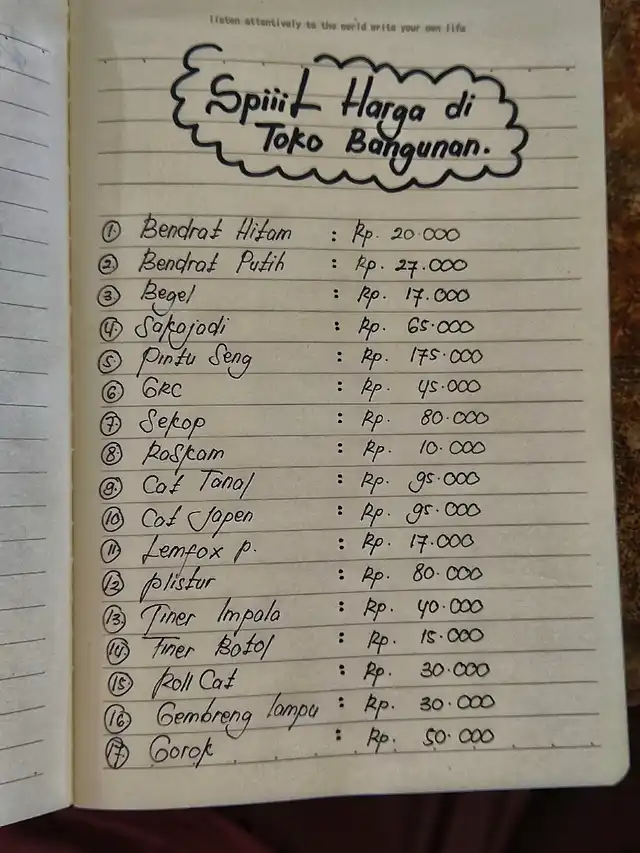 listen attentively to the world write your own life
Spiiit Harga di
Toko Bangunan.
1. Bendrat Hitam : Rp. 20.000
2. Bendrat Putih : Rp. 27.000
3. Begel : Rp. 17.000
4. Sakojodi : Rp. 65.000
5. Pintu Seng : Rp. 175.000
6. GRC : Rp. 45.000
7. Sekop : Rp. 80.000
8. Roskam : Rp. 10.000
9. Cat Tanal : Rp. 95.000
10. Cat Japen : Rp. 95.000
11. Lemfox p. : Rp. 17.000
12. plistur : Rp. 80.000
13. Tiner Impala : Rp. 40.000
14. Tiner Botol : Rp. 15.000
15. Roll Cat : Rp. 30.000
16. Gembreng lampu : Rp. 30.000
17. Gorok : Rp. 50.000